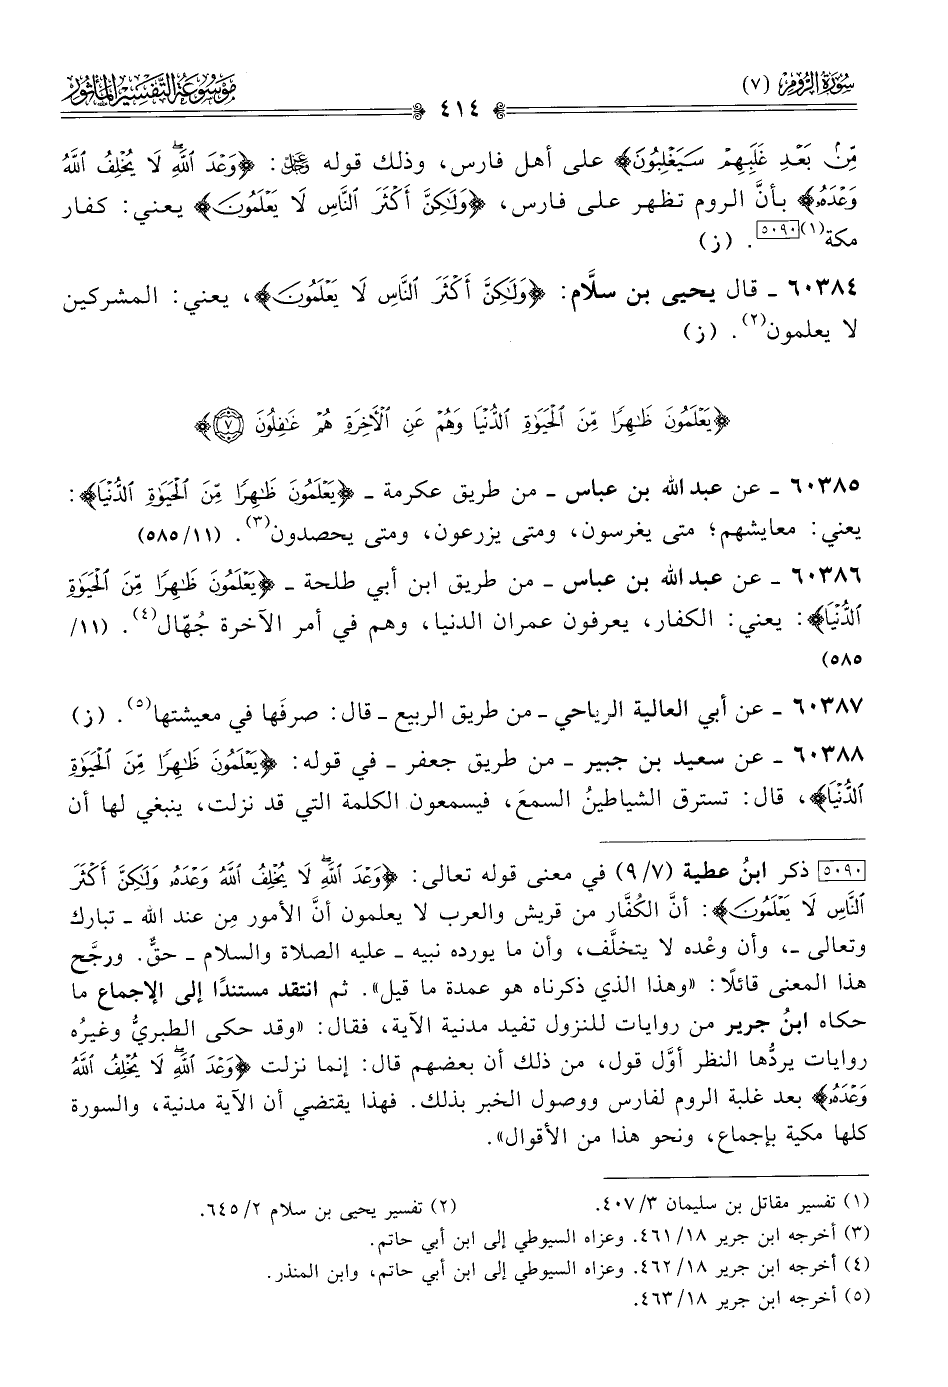 سُورَةُ الرُّومِ (٧)
٤١٤
مَوْسُوعَةُ التَّفْسِيرِ المَأْثُور
مِّنۢ بَعْدِ غَلَبِهِمْ سَيَغْلِبُونَ﴾ على أهل فارس، وذلك قوله ﷻ: ﴿وَعْدَ ٱللَّهِۖ لَا يُخْلِفُ ٱللَّهُ
وَعْدَهُۥ﴾ بأنَّ الروم تظهر على فارس، ﴿وَلَٰكِنَّ أَكْثَرَ ٱلنَّاسِ لَا يَعْلَمُونَ﴾ يعني: كفار
مكة(١)[٥٠٩٠]. (ز)
٦٠٣٨٤ ـ قال يحيى بن سلَّام: ﴿وَلَٰكِنَّ أَكْثَرَ ٱلنَّاسِ لَا يَعْلَمُونَ﴾، يعني: المشركين
لا يعلمون(٢). (ز)
﴿يَعْلَمُونَ ظَٰهِرًا مِّنَ ٱلْحَيَوٰةِ ٱلدُّنْيَا وَهُمْ عَنِ ٱلْأٓخِرَةِ هُمْ غَٰفِلُونَ ٧﴾
٦٠٣٨٥ ـ عن عبد الله بن عباس ـ من طريق عكرمة ـ ﴿يَعْلَمُونَ ظَٰهِرًا مِّنَ ٱلْحَيَوٰةِ ٱلدُّنْيَا﴾:
يعني: معايشهم؛ متى يغرسون، ومتى يزرعون، ومتى يحصدون(٣). (١١/٥٨٥)
٦٠٣٨٦ ـ عن عبد الله بن عباس ـ من طريق ابن أبي طلحة ـ ﴿يَعْلَمُونَ ظَٰهِرًا مِّنَ ٱلْحَيَوٰةِ
ٱلدُّنْيَا﴾: يعني: الكفار، يعرفون عمران الدنيا، وهم في أمر الآخرة جُهّال(٤). (١١/
٥٨٥)
٦٠٣٨٧ ـ عن أبي العالية الرياحي ـ من طريق الربيع ـ قال: صرفَها في معيشتها(٥). (ز)
٦٠٣٨٨ ـ عن سعيد بن جبير ـ من طريق جعفر ـ في قوله: ﴿يَعْلَمُونَ ظَٰهِرًا مِّنَ ٱلْحَيَوٰةِ
ٱلدُّنْيَا﴾، قال: تسترق الشياطينُ السمعَ، فيسمعون الكلمة التي قد نزلت، ينبغي لها أن
[٥٠٩٠] ذكر ابنُ عطية (٧/٩) في معنى قوله تعالى: ﴿وَعْدَ ٱللَّهِۖ لَا يُخْلِفُ ٱللَّهُ وَعْدَهُۥ وَلَٰكِنَّ أَكْثَرَ
ٱلنَّاسِ لَا يَعْلَمُونَ﴾: أنَّ الكُفَّار من قريش والعرب لا يعلمون أنَّ الأمور مِن عند الله ـ تبارك
وتعالى ـ، وأن وعْده لا يتخلَّف، وأن ما يورده نبيه ـ عليه الصلاة والسلام ـ حقٌّ. ورجَّح
هذا المعنى قائلًا: «وهذا الذي ذكرناه هو عمدة ما قيل». ثم انتقد مستندًا إلى الإجماع ما
حكاه ابنُ جرير من روايات للنزول تفيد مدنية الآية، فقال: «وقد حكى الطبريُّ وغيرُه
روايات يردُّها النظر أوَّل قول، من ذلك أن بعضهم قال: إنما نزلت ﴿وَعْدَ ٱللَّهِۖ لَا يُخْلِفُ ٱللَّهُ
وَعْدَهُۥ﴾ بعد غلبة الروم لفارس ووصول الخبر بذلك. فهذا يقتضي أن الآية مدنية، والسورة
كلها مكية بإجماع، ونحو هذا من الأقوال».
(١) تفسير مقاتل بن سليمان ٣/٤٠٧. (٢) تفسير يحيى بن سلام ٢/٦٤٥.
(٣) أخرجه ابن جرير ١٨/٤٦١. وعزاه السيوطي إلى ابن أبي حاتم.
(٤) أخرجه ابن جرير ١٨/٤٦٢. وعزاه السيوطي إلى ابن أبي حاتم، وابن المنذر.
(٥) أخرجه ابن جرير ١٨/٤٦٣.